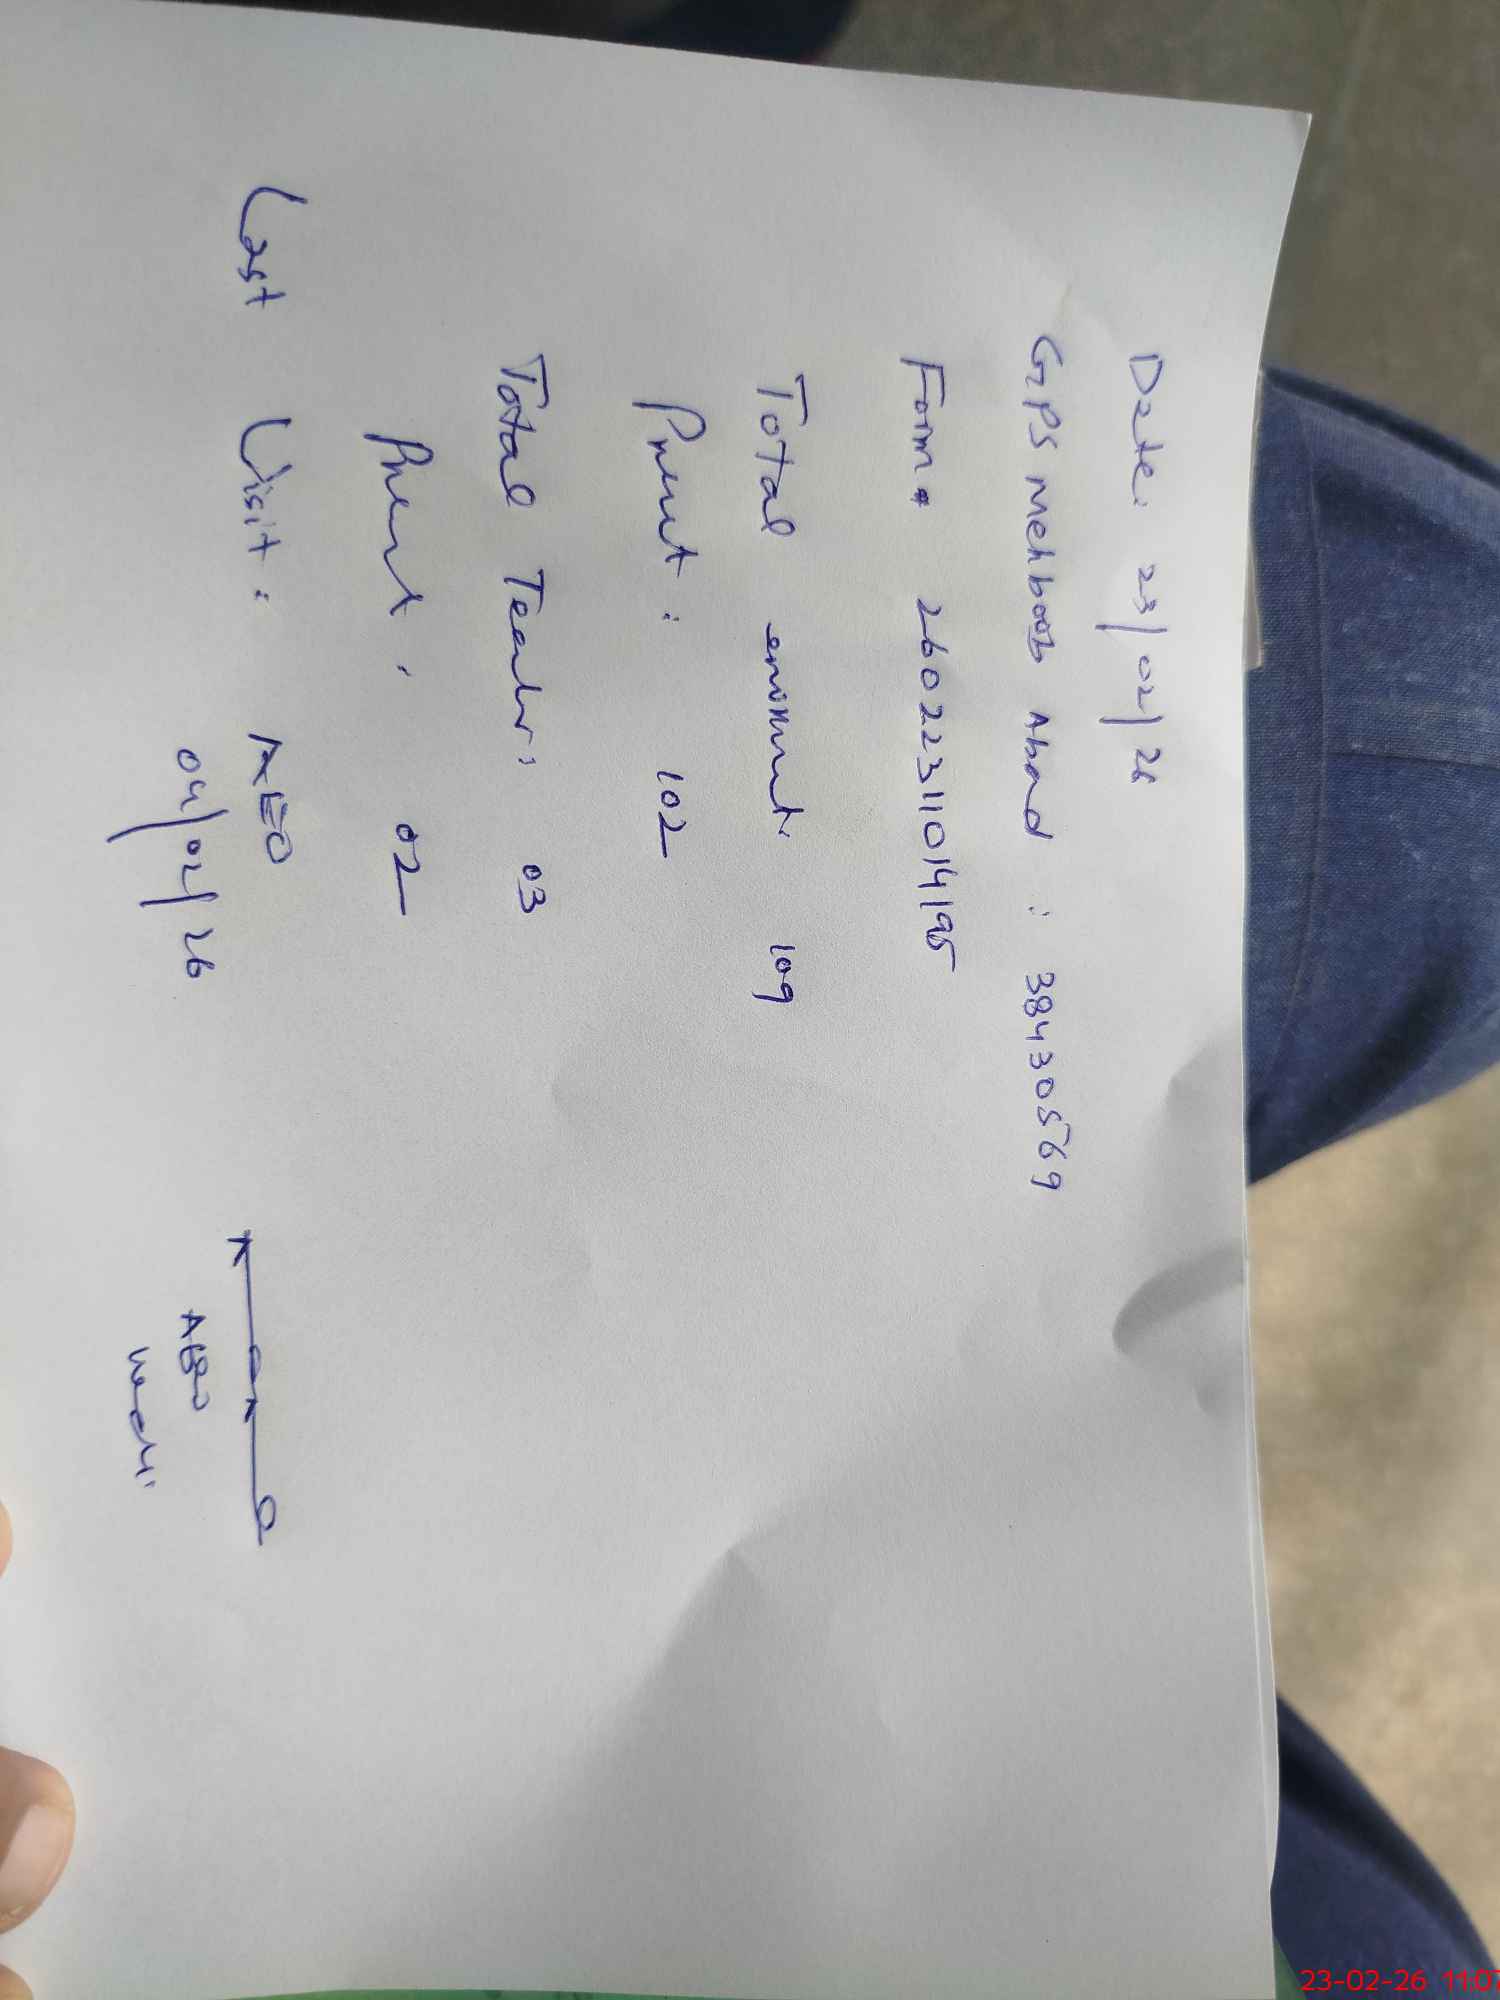 Date: 23/02/26
GPS Mehboob Abad : 38430569
Form # 26022311014195
Total enrolment: 109
Present : 102
Total Teacher: 03
Present : 02
Last Visit : AEO
04/02/26
AEO
23-02-26 11:07